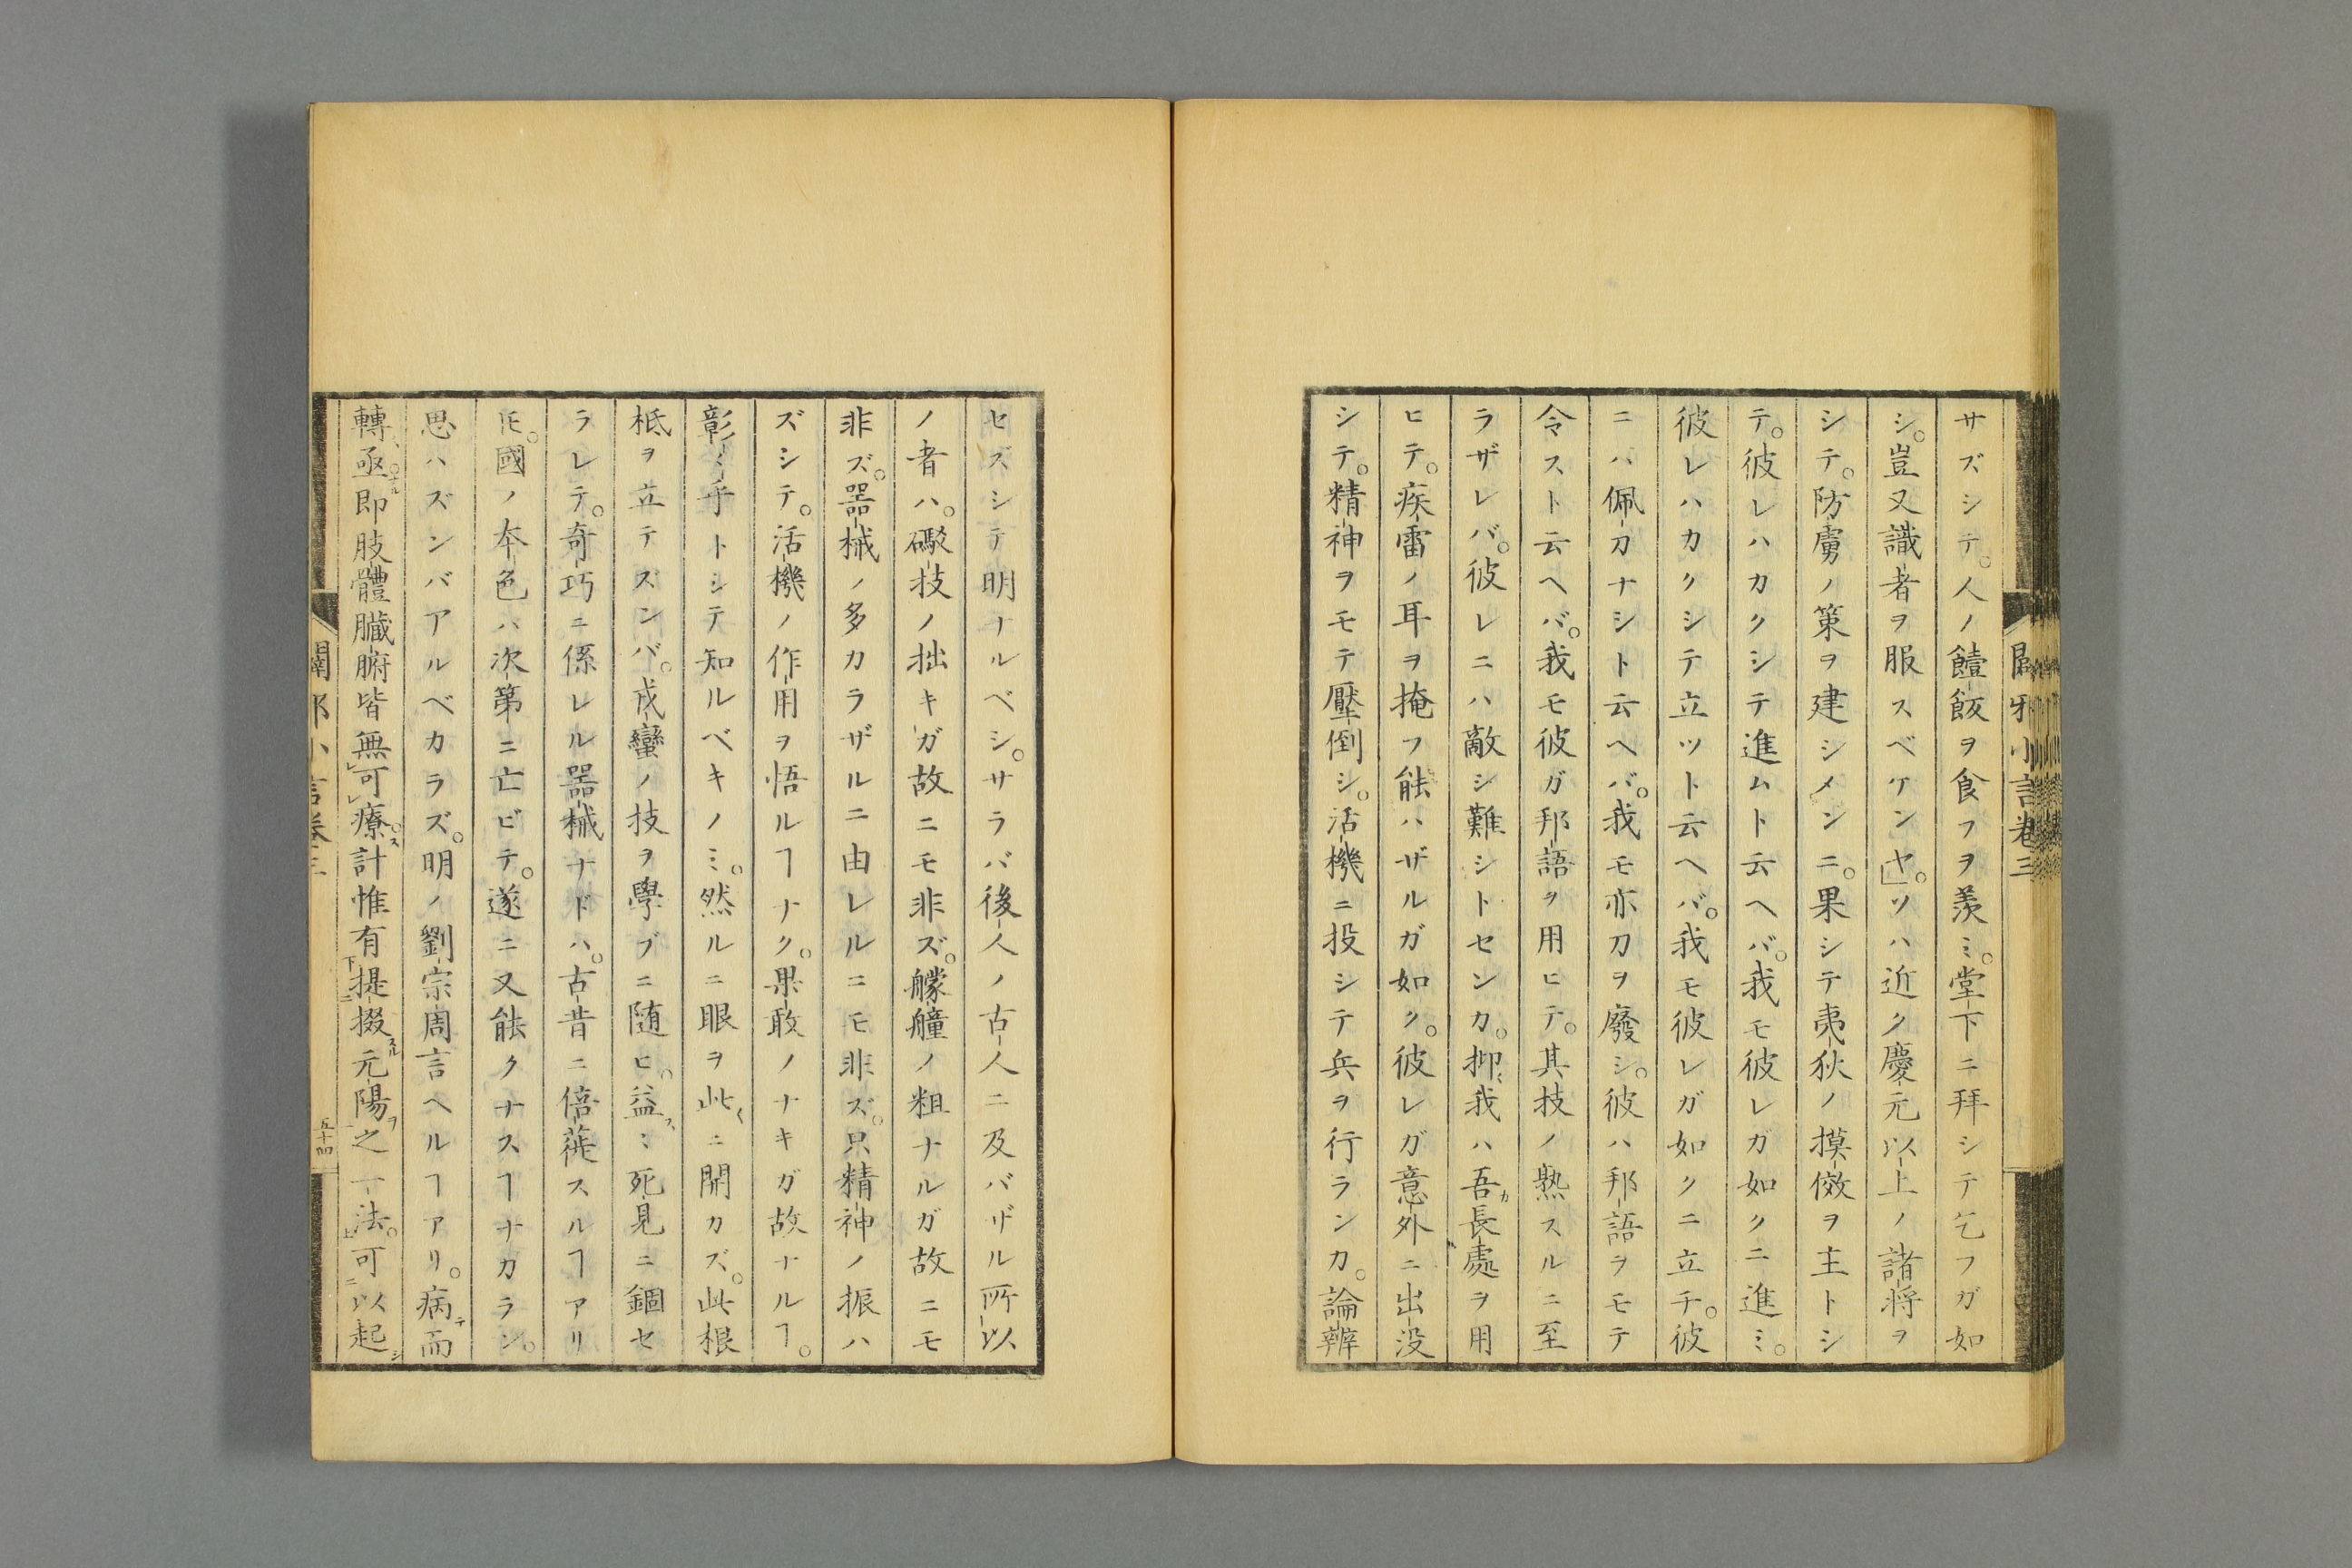 サズシテ。人ノ饐飯ヲ食フヲ羨ミ。堂下ニ拜シテ乞フガ如
シ。豈又識者ヲ服スベケンヤ。」ソハ近ク慶元以上ノ諸将ヲ
シテ。防虜ノ策ヲ建シメンニ。果シテ夷狄ノ摸傚ヲ主トシ
テ。彼レハカクシテ進ムト云ヘバ。我モ彼レガ如クニ進ミ。
彼レハカクシテ立ツト云ヘバ。我モ彼レガ如クニ立チ。彼
ニハ佩刀ナシト云ヘバ。我モ亦刀ヲ廢シ。彼ハ邦語ヲモテ
令スト云ヘバ。我モ彼ガ邦語ヲ用ヒテ。其技ノ熟スルニ至
ラザレバ。彼レニハ敵シ難シトセンカ。抑〻我ハ吾ガ長處ヲ用
ヒテ。疾雷ノ耳ヲ掩フ能ハザルガ如ク。彼レガ意外ニ出没
シテ。精神ヲモテ壓倒シ。活機ニ投シテ兵ヲ行ランカ。論辨
闢邪小言卷三
セズシテ明ナルベシ。サラバ後人ノ古人ニ及バザル所以
ノ者ハ。礮技ノ拙キガ故ニモ非ズ。艨艟ノ粗ナルガ故ニモ
非ズ。器械ノ多カラザルニ由レルニモ非ズ。只精神ノ振ハ
ズシテ。活機ノ作用ヲ悟ルヿナク。果敢ノナキガ故ナルヿ。
彰〻乎トシテ知ルベキノミ。然ルニ眼ヲ此ニ開カズ。此根
柢ヲ立テズンバ。戎蠻ノ技ヲ學ブニ随ヒ。益〻死見ニ錮セ
ラレテ。奇巧ニ係レル器械ナドハ。古昔ニ倍蓰スルヿアリ
𪜈。國ノ本色ハ次第ニ亡ビテ。遂ニ又能クナスヿナカラン。
思ハズンバアルベカラズ。明ノ劉宗周言ヘルヿアリ。病テ而
轉〻亟ナル。即肢體臓腑皆無可療ス。計惟有提掇スル元陽ヲ之一法。可ニ以起シ
闢邪小言卷三
五十四